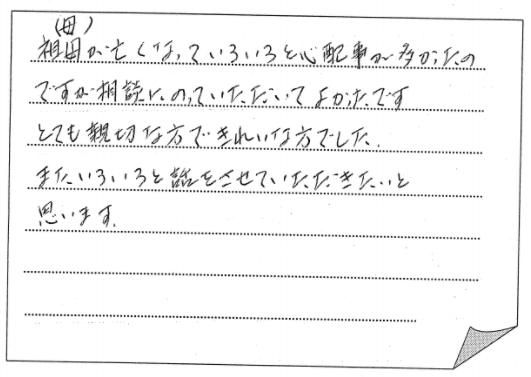 (母)
祖母が亡くなっていろいろと心配事が多かったの
ですが相談にのっていただいてよかったです
とても親切な方できれいな方でした.
またいろいろと話をさせていただきたいと
思います.